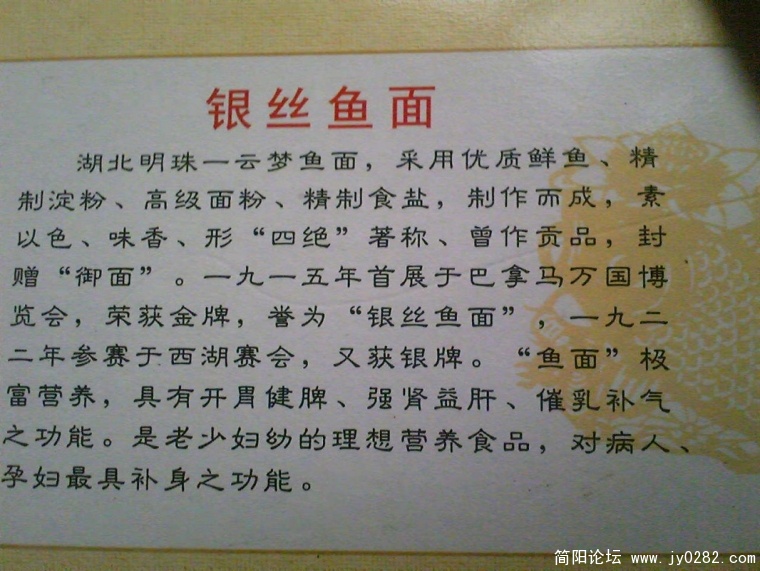 银丝鱼面
湖北明珠一云梦鱼面，采用优质鲜鱼、精
制淀粉、高级面粉、精制食盐，制作而成，素
以色、味香、形“四绝”著称、曾作贡品，封
赠“御面”。一九一五年首展于巴拿马万国博
览会，荣获金牌，誉为“银丝鱼面”，一九二
二年参赛于西湖赛会，又获银牌。“鱼面”极
富营养，具有开胃健脾、强肾益肝、催乳补气
之功能。是老少妇幼的理想营养食品，对病人、
孕妇最具补身之功能。
简阳论坛 www.jy0282.com